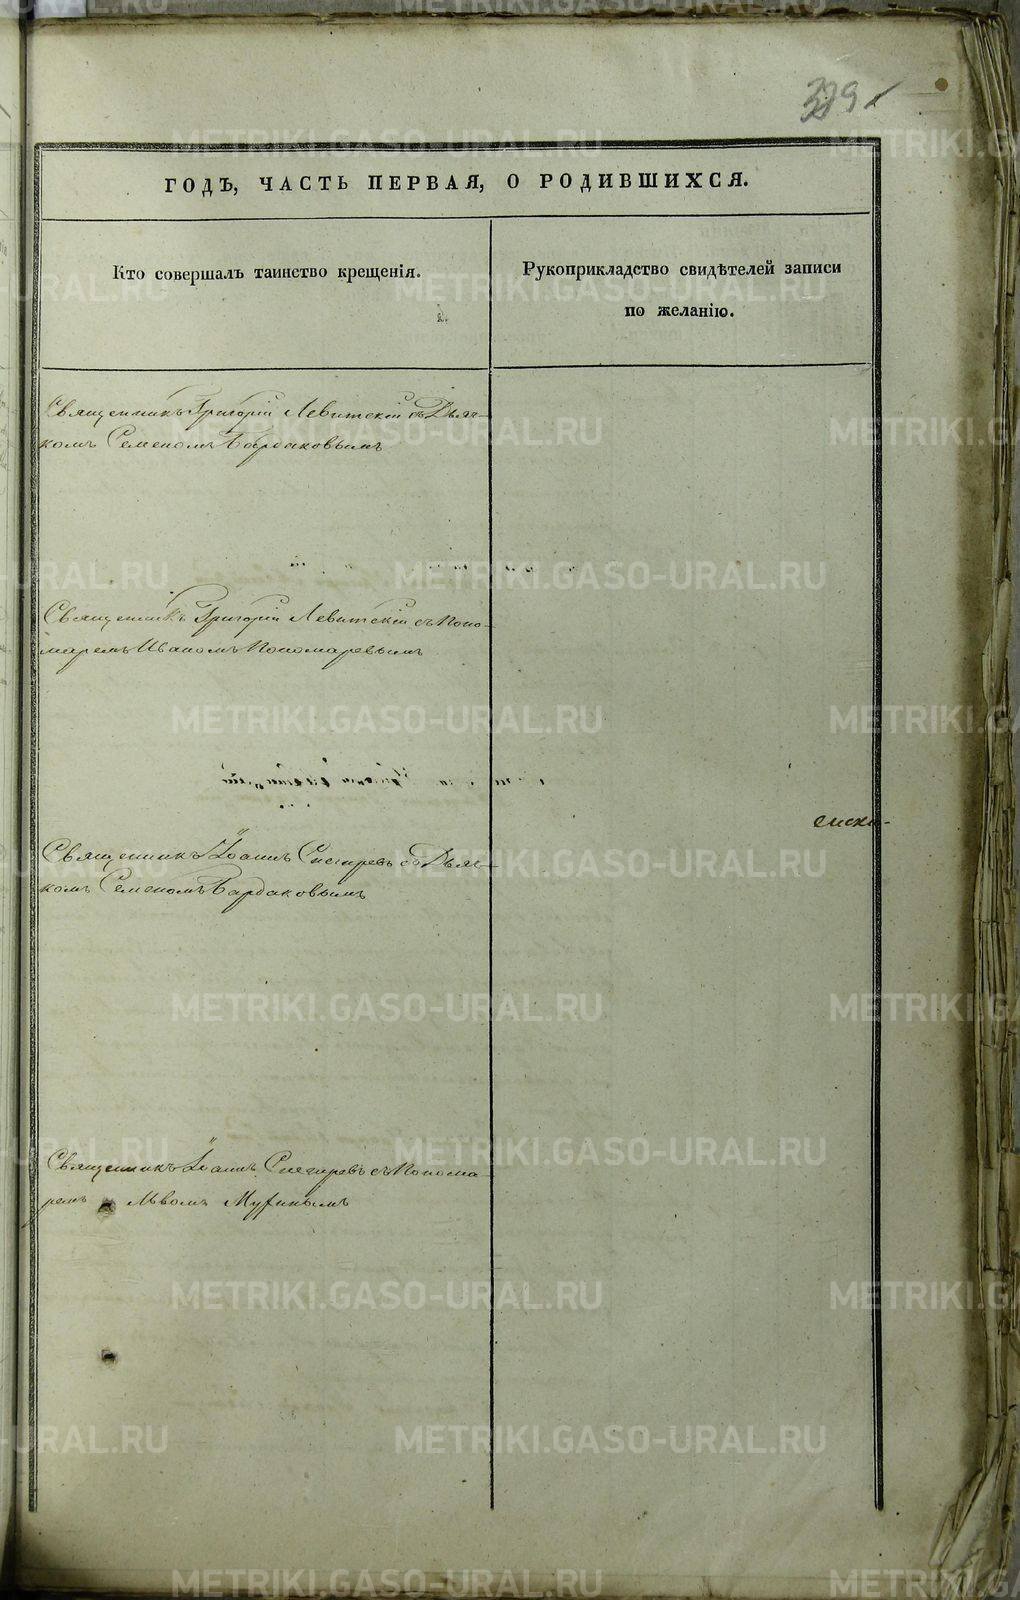 ГОДЪ, ЧАСТЬ ПЕРВАЯ, О РОДИВШИХСЯ.
Кто совершалъ таинство крещенія.
Рукоприкладство свидѣтелей записи
по желанію.
Священникъ Григорій Левитскій съ Дьяч-
комъ Семеномъ Барбаковымъ
Священникъ Григорій Левитскій съ Поно-
маремъ Иваномъ Пономаревымъ
Священникъ Іоаннъ Снегиревъ съ Дьяч-
комъ Семеномъ Барбаковымъ
Священникъ Іоаннъ Снегиревъ съ Понома-
ремъ Львомъ
METRIKI.GASO-URAL.RU